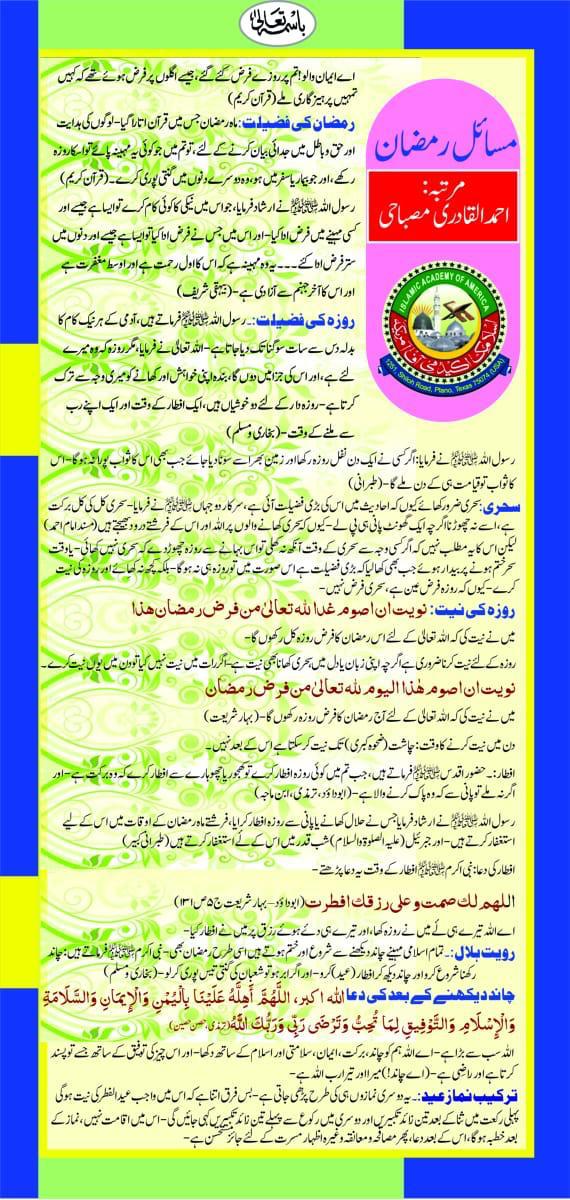 باسمہ تعالیٰ
مسائل رمضان
مرتبہ:
احمد القادری مصباحی
ISLAMIC ACADEMY OF AMERICA
اسلامک اکیڈمی آف امریکہ
1251, Shiloh Road, Plano, Texas 75074 (USA)
اے ایمان والو! تم پر روزے فرض کئے گئے، جیسے اگلوں پر فرض ہوئے تھے کہ کہیں
تمہیں پرہیز گاری ملے (قرآن کریم)
رمضان کی فضیلت: ماہ رمضان جس میں قرآن اتارا گیا۔ لوگوں کی ہدایت
اور حق و باطل میں جدائی بیان کرنے کے لئے، تو تم میں جو کوئی یہ مہینہ پائے تو اس کا روزہ
رکھے، اور جو بیمار یا سفر میں ہو، وہ دوسرے دنوں میں گنتی پوری کرے۔ (قرآن کریم)
رسول اللہ ﷺ نے ارشاد فرمایا، جو اس میں نیکی کا کوئی کام کرے تو ایسا ہے جیسے اور
کسی مہینے میں فرض ادا کیا۔ اور اس میں جس نے فرض ادا کیا تو ایسا ہے جیسے اور دنوں میں
ستر فرض ادا کئے ۔۔۔ یہ وہ مہینہ ہے کہ اس کا اول رحمت ہے اور اوسط مغفرت ہے
اور اس کا آخر جہنم سے آزادی ہے۔ (بیہقی شریف)
روزہ کی فضیلت:۔ رسول اللہ ﷺ فرماتے ہیں، آدمی کے ہر نیک کام کا
بدلہ دس سے سات سو گنا تک دیا جاتا ہے۔ اللہ تعالیٰ نے فرمایا، مگر روزہ کہ وہ میرے
لئے ہے، اور اس کی جزا میں دوں گا، بندہ اپنی خواہش اور کھانے کو میری وجہ سے ترک
کرتا ہے۔ روزہ دار کے لئے دو خوشیاں ہیں، ایک افطار کے وقت اور ایک اپنے رب
سے ملنے کے وقت۔ (بخاری و مسلم)
رسول اللہ ﷺ نے فرمایا: اگر کسی نے ایک دن نفل روزہ رکھا اور زمین بھر اسے سونا دیا جائے جب بھی اس کا ثواب پورا نہ ہوگا۔ اس
کا ثواب تو قیامت ہی کے دن ملے گا۔ (طبرانی)
سحری: سحری ضرور کھائے کیوں کہ احادیث میں اس کی بڑی فضیلت آئی ہے، سرکار دو جہاں ﷺ نے فرمایا۔ سحری کل کی کل برکت
ہے، اسے نہ چھوڑنا اگرچہ ایک گھونٹ پانی ہی پی لے۔ کیوں کہ سحری کھانے والوں پر اللہ اور اس کے فرشتے درود بھیجتے ہیں (مسند امام احمد)
لیکن اس کا یہ مطلب نہیں کہ اگر کسی وجہ سے سحری کے وقت آنکھ نہ کھلی تو اس بہانے سے روزہ چھوڑ دے کہ سحری نہیں کھائی۔ یا وقت
سحر ختم ہونے پر بیدار ہوئے جب بھی کھا لیا کہ بڑی فضیلت ہے اس صورت میں تو روزہ ہی نہ ہوگا۔ بلکہ کچھ نہ کھائے اور روزہ کی نیت
کرے۔ کیوں کہ روزہ فرض عین ہے، سحری فرض نہیں۔
روزہ کی نیت: نویت ان اصوم غدا للہ تعالیٰ من فرض رمضان ھذا
میں نے نیت کی کہ اللہ تعالیٰ کے لئے اس رمضان کا فرض روزہ کل رکھوں گا۔
روزہ کے لئے نیت کرنا ضروری ہے اگرچہ اپنی زبان یا دل میں، سحری کھانا بھی نیت ہے۔ اگر رات میں نیت نہیں کیا تو دن میں یوں نیت کرے۔
نویت ان اصوم ھذا الیوم للہ تعالیٰ من فرض رمضان
میں نے نیت کی کہ اللہ تعالیٰ کے لئے آج رمضان کا فرض روزہ رکھوں گا۔ (بہار شریعت)
دن میں نیت کرنے کا وقت: چاشت (ضحوہ کبریٰ) تک نیت کر سکتا ہے اس کے بعد نہیں۔
افطار:۔ حضور اقدس ﷺ فرماتے ہیں، جب تم میں کوئی روزہ افطار کرے تو کھجور یا چھوہارے سے افطار کرے کہ وہ برکت ہے۔ اور
اگر نہ ملے تو پانی سے کہ وہ پاک کرنے والا ہے۔ (ابوداؤد، ترمذی، ابن ماجہ)
رسول اللہ ﷺ نے ارشاد فرمایا جس نے حلال کھانے یا پانی سے روزہ افطار کرایا، فرشتے ماہ رمضان کے اوقات میں اس کے لیے
استغفار کرتے ہیں۔ اور جبرئیل (علیہ الصلوۃ والسلام) شب قدر میں اس کے لئے استغفار کرتے ہیں (طبرانی کبیر)
افطار کی دعا: نبی اکرم ﷺ افطار کے وقت یہ دعا پڑھتے۔
اللھم لك صمت و علی رزقك افطرت (ابو داؤد۔ بہار شریعت ج ۵ ص ۱۳۱)
اے اللہ تیرے ہی لئے میں نے روزہ رکھا، اور تیرے ہی دیے ہوئے رزق پر میں نے افطار کیا۔
رویت ہلال:۔ تمام اسلامی مہینے چاند دیکھنے سے شروع اور ختم ہوتے ہیں اسی طرح رمضان بھی۔ نبی اکرم ﷺ فرماتے ہیں: چاند
رکھنا شروع کرو اور چاند دیکھ کر افطار (عید) کرو۔ اور اگر ابر ہو تو شعبان کی گنتی تیس پوری کر لو۔ (بخاری و مسلم)
چاند دیکھنے کے بعد کی دعا اللہ اکبر، اَللّٰهُمَّ اَهِلَّهُ عَلَيْنَا بِالْيُمْنِ وَالْإِيمَانِ وَالسَّلَامَةِ
وَالْإِسْلَامِ وَالتَّوْفِيقِ لِمَا تُحِبُّ وَتَرْضَى رَبِّي وَرَبُّكَ اللّٰهُ (ترمذی، حصن حصین)
اللہ سب سے بڑا ہے۔ اے اللہ ہم کو چاند، برکت، ایمان، سلامتی اور اسلام کے ساتھ دکھا۔ اور اس چیز کی توفیق کے ساتھ جسے تو پسند
کرتا ہے اور راضی ہے۔ (اے چاند!) میرا اور تیرا رب اللہ ہے۔
ترکیب نماز عید:۔ یہ دوسری نمازوں ہی کی طرح پڑھی جاتی ہے۔ بس فرق اتنا ہے کہ اس میں واجب عید الفطر کی نیت ہوگی
پہلی رکعت میں ثنا کے بعد تین زائد تکبیریں اور دوسری میں رکوع سے پہلے تین زائد تکبیریں کہی جائیں گی۔ اس میں اقامت نہیں، نماز کے
بعد خطبہ ہوگا، اس کے بعد دعا، پھر مصافحہ و معانقہ وغیرہ اظہار مسرت کے لئے جائز و مستحسن ہے۔